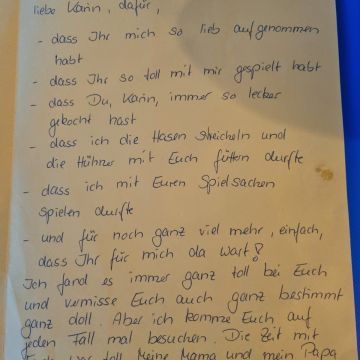 liebe Karin, dafür,
- dass Ihr mich so lieb aufgenommen
habt
- dass Ihr so toll mit mir gespielt habt
- dass Du, Karin, immer so lecker
gekocht hast
- dass ich die Hasen streicheln und
die Hühner mit Euch füttern durfte
- dass ich mit Euren Spielsachen
spielen durfte
- und für noch ganz viel mehr, einfach,
dass Ihr für mich da wart!
Ich fand es immer ganz toll bei Euch
und vermisse Euch auch ganz bestimmt
ganz doll. Aber ich komme Euch auf
jeden Fall mal besuchen. Die Zeit mit
Euch war toll. Meine Mama und mein Papa